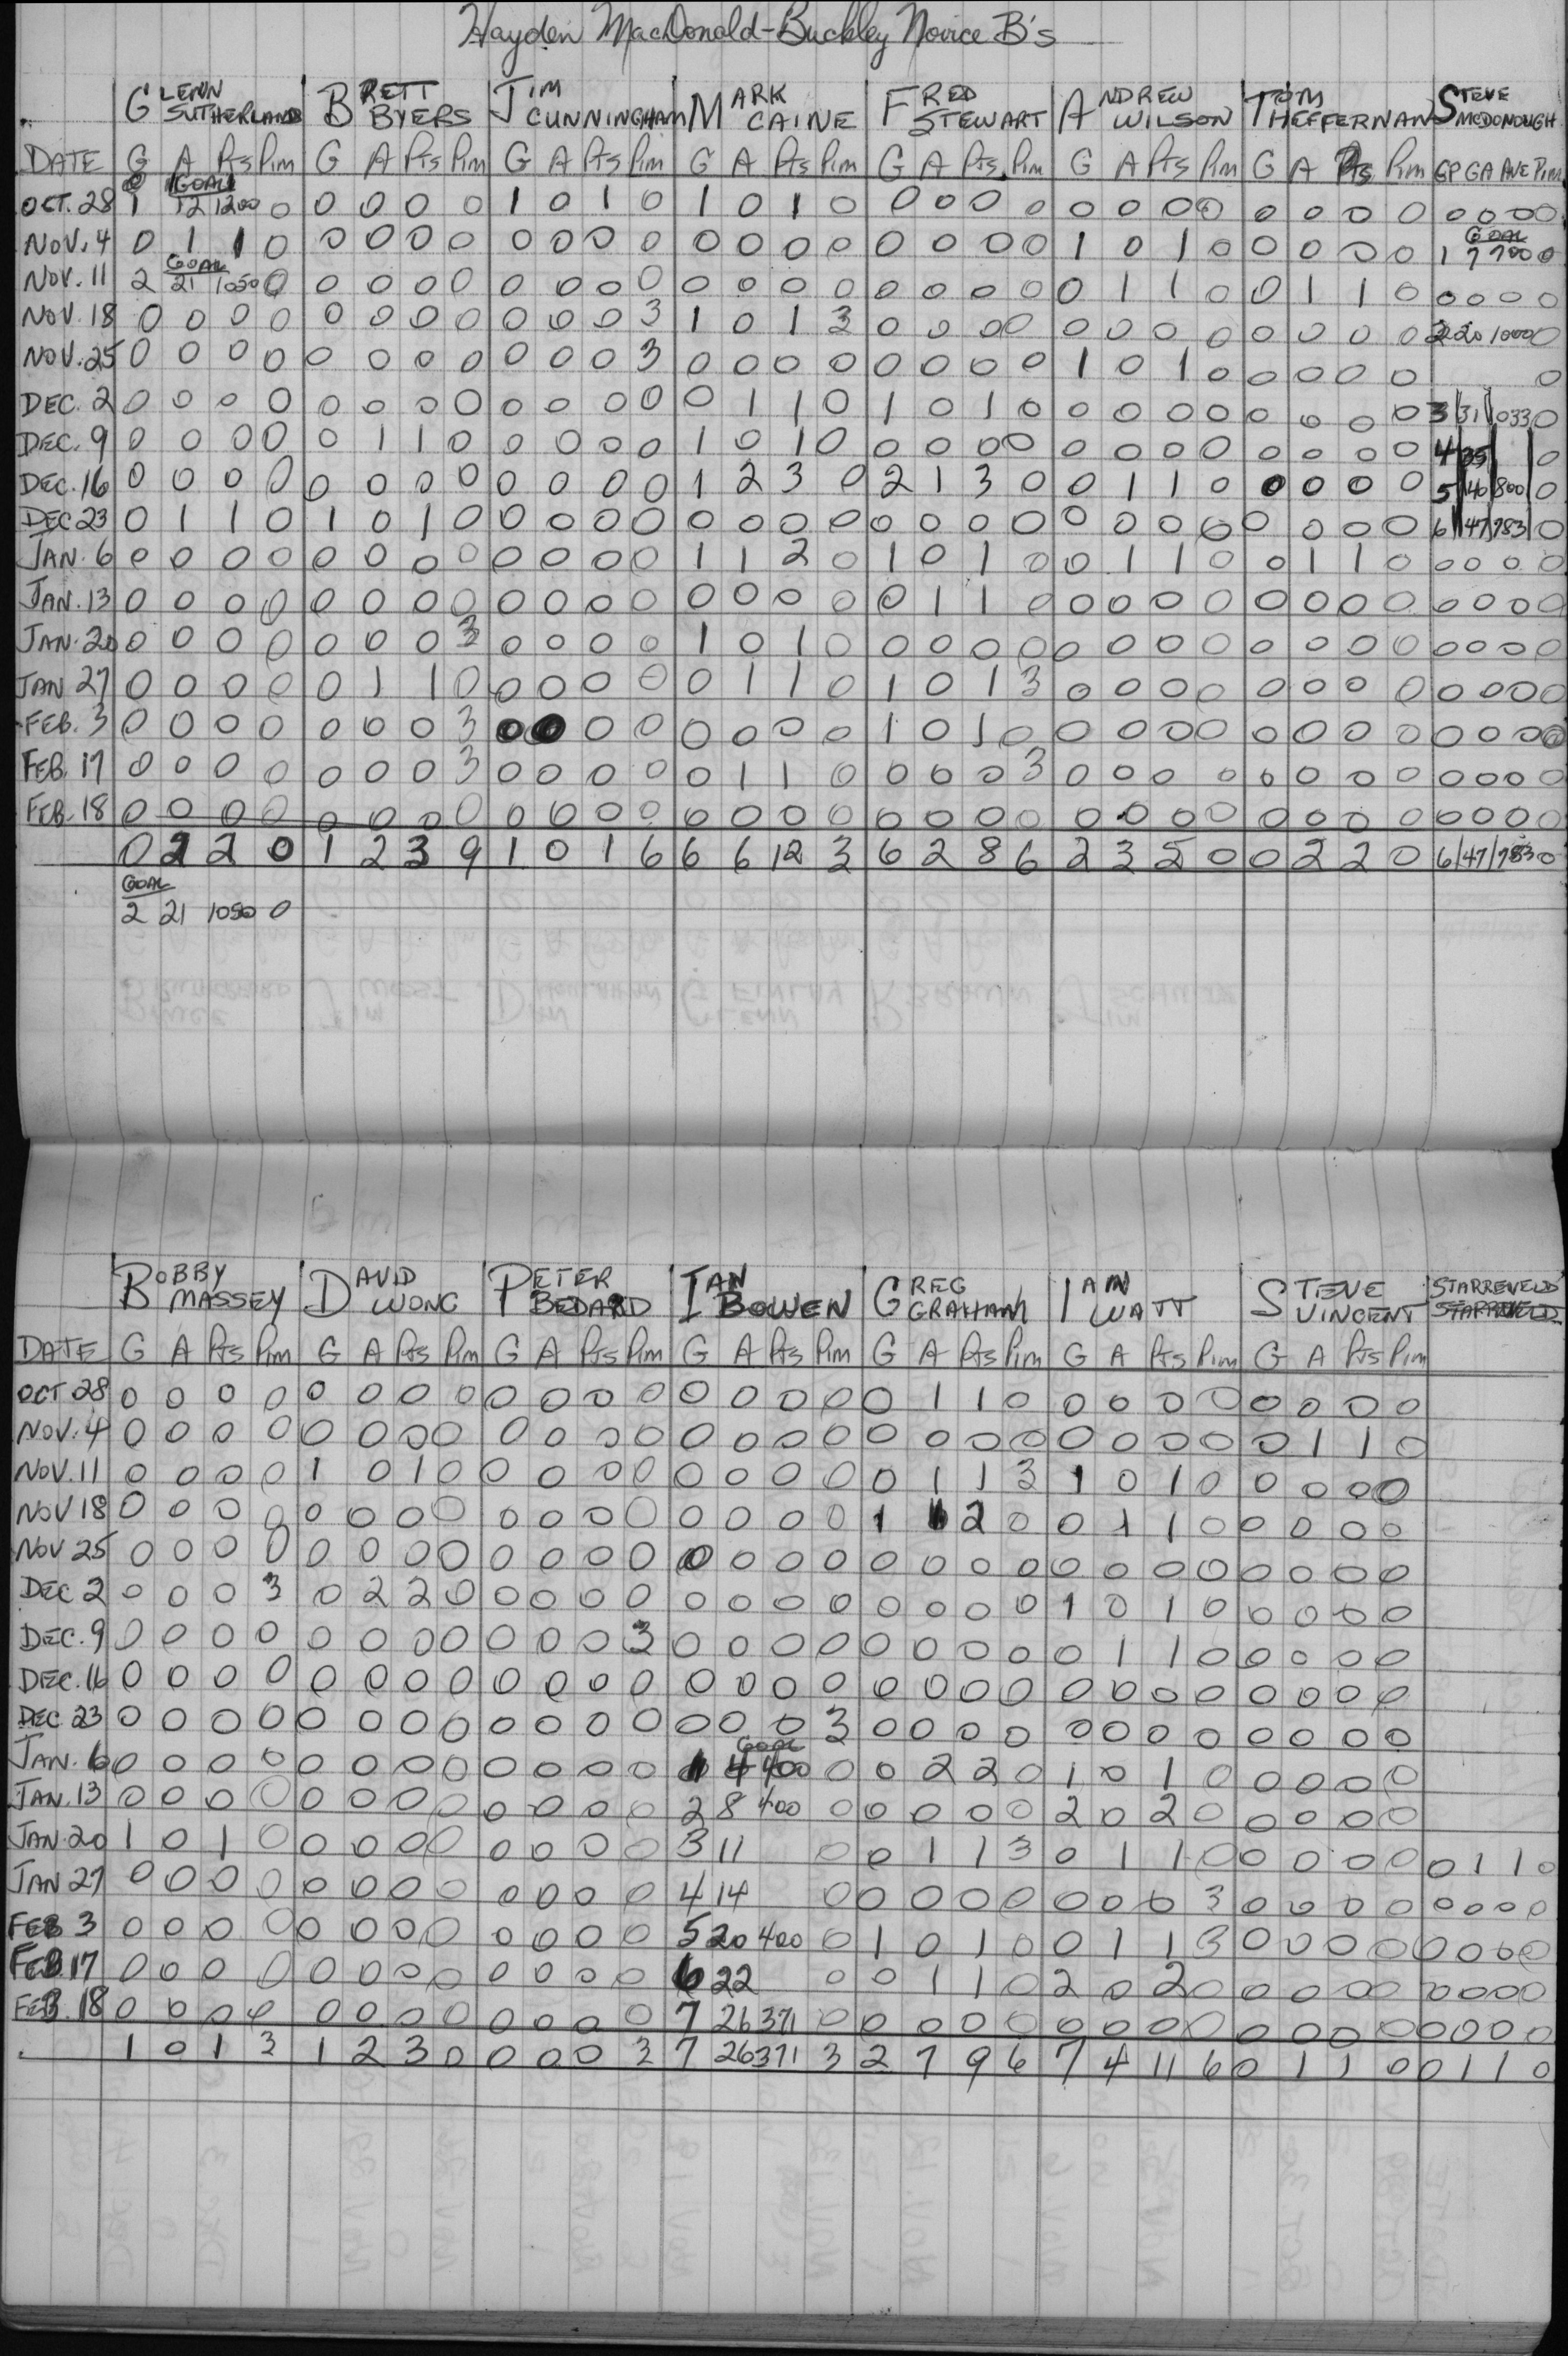 Hayden MacDonald-Buckley Novice B's
GLENN SUTHERLAND BRETT BYERS JIM CUNNINGHAM MARK CAINE FRED STEWART ANDREW WILSON TOM HEFFERNAN STEVE MCDONOUGH
DATE G A Pts Pim G A Pts Pim G A Pts Pim G A Pts Pim G A Pts Pim G A Pts Pim G A Pts Pim GP GA AVE Pim
GOAL
OCT. 28 1 12 1200 0 0 0 0 0 1 0 1 0 1 0 1 0 0 0 0 0 0 0 0 0 0 0 0 0 0 0 0 0
GOAL
NOV. 4 0 1 1 0 0 0 0 0 0 0 0 0 0 0 0 0 0 0 0 0 1 0 1 0 0 0 0 0 1 7 700 0
GOAL
NOV. 11 2 21 1050 0 0 0 0 0 0 0 0 0 0 0 0 0 0 0 0 0 0 1 1 0 0 1 1 0 0 0 0 0
NOV. 18 0 0 0 0 0 0 0 0 0 0 0 3 1 0 1 3 0 0 0 0 0 0 0 0 0 0 0 0 2 20 1000 0
NOV. 25 0 0 0 0 0 0 0 0 0 0 0 3 0 0 0 0 0 0 0 0 1 0 1 0 0 0 0 0 0
DEC. 2 0 0 0 0 0 0 0 0 0 0 0 0 0 1 1 0 1 0 1 0 0 0 0 0 0 0 0 0 3 31 1033 0
DEC. 9 0 0 0 0 0 1 1 0 0 0 0 0 1 0 1 0 0 0 0 0 0 0 0 0 0 0 0 0 4 35 0
DEC. 16 0 0 0 0 0 0 0 0 0 0 0 0 1 2 3 0 2 1 3 0 0 1 1 0 0 0 0 0 5 40 800 0
DEC 23 0 1 1 0 1 0 1 0 0 0 0 0 0 0 0 0 0 0 0 0 0 0 0 0 0 0 0 0 6 47 783 0
JAN. 6 0 0 0 0 0 0 0 0 0 0 0 0 1 1 2 0 1 0 1 0 0 1 1 0 0 1 1 0 0 0 0 0
JAN. 13 0 0 0 0 0 0 0 0 0 0 0 0 0 0 0 0 0 1 1 0 0 0 0 0 0 0 0 0 0 0 0 0
JAN. 20 0 0 0 0 0 0 0 3 0 0 0 0 1 0 1 0 0 0 0 0 0 0 0 0 0 0 0 0 0 0 0 0
JAN 27 0 0 0 0 0 1 1 0 0 0 0 0 0 1 1 0 1 0 1 3 0 0 0 0 0 0 0 0 0 0 0 0
FEB. 3 0 0 0 0 0 0 0 3 0 0 0 0 0 0 0 0 1 0 1 0 0 0 0 0 0 0 0 0 0 0 0 0
FEB. 17 0 0 0 0 0 0 0 3 0 0 0 0 0 1 1 0 0 0 0 3 0 0 0 0 0 0 0 0 0 0 0 0
FEB. 18 0 0 0 0 0 0 0 0 0 0 0 0 0 0 0 0 0 0 0 0 0 0 0 0 0 0 0 0 0 0 0 0
0 2 2 0 1 2 3 9 1 0 1 6 6 6 12 3 6 2 8 6 2 3 5 0 0 2 2 0 6 47 783 0
GOAL
2 21 1050 0
BOBBY MASSEY DAVID WONG PETER BEDARD IAN BOWEN GREG GRAHAM IAIN WATT STEVE VINCENT STARREVELD
DATE G A Pts Pim G A Pts Pim G A Pts Pim G A Pts Pim G A Pts Pim G A Pts Pim G A Pts Pim
OCT 28 0 0 0 0 0 0 0 0 0 0 0 0 0 0 0 0 0 1 1 0 0 0 0 0 0 0 0 0
NOV. 4 0 0 0 0 0 0 0 0 0 0 0 0 0 0 0 0 0 0 0 0 0 0 0 0 0 1 1 0
NOV. 11 0 0 0 0 1 0 1 0 0 0 0 0 0 0 0 0 0 1 1 3 1 0 1 0 0 0 0 0
NOV 18 0 0 0 0 0 0 0 0 0 0 0 0 0 0 0 0 1 1 2 0 0 1 1 0 0 0 0 0
NOV 25 0 0 0 0 0 0 0 0 0 0 0 0 0 0 0 0 0 0 0 0 0 0 0 0 0 0 0 0
DEC 2 0 0 0 3 0 2 2 0 0 0 0 0 0 0 0 0 0 0 0 0 1 0 1 0 0 0 0 0
DEC. 9 0 0 0 0 0 0 0 0 0 0 0 3 0 0 0 0 0 0 0 0 0 1 1 0 0 0 0 0
DEC. 16 0 0 0 0 0 0 0 0 0 0 0 0 0 0 0 0 0 0 0 0 0 0 0 0 0 0 0 0
DEC 23 0 0 0 0 0 0 0 0 0 0 0 0 0 0 0 3 0 0 0 0 0 0 0 0 0 0 0 0
GOAL
JAN. 6 0 0 0 0 0 0 0 0 0 0 0 0 1 4 400 0 0 2 2 0 1 0 1 0 0 0 0 0
JAN. 13 0 0 0 0 0 0 0 0 0 0 0 0 2 8 400 0 0 0 0 0 2 0 2 0 0 0 0 0
JAN. 20 1 0 1 0 0 0 0 0 0 0 0 0 3 11 0 0 1 1 3 0 1 1 0 0 0 0 0 0 1 1 0
JAN 27 0 0 0 0 0 0 0 0 0 0 0 0 4 14 0 0 0 0 0 0 0 0 3 0 0 0 0 0 0 0 0
FEB 3 0 0 0 0 0 0 0 0 0 0 0 0 5 20 400 0 1 0 1 0 0 1 1 3 0 0 0 0 0 0 0 0
FEB. 17 0 0 0 0 0 0 0 0 0 0 0 0 6 22 0 0 1 1 0 2 0 2 0 0 0 0 0 0 0 0 0
FEB. 18 0 0 0 0 0 0 0 0 0 0 0 0 7 26 371 0 0 0 0 0 0 0 0 0 0 0 0 0 0 0 0 0
1 0 1 3 1 2 3 0 0 0 0 3 7 26 371 3 2 7 9 6 7 4 11 6 0 1 1 0 0 1 1 0